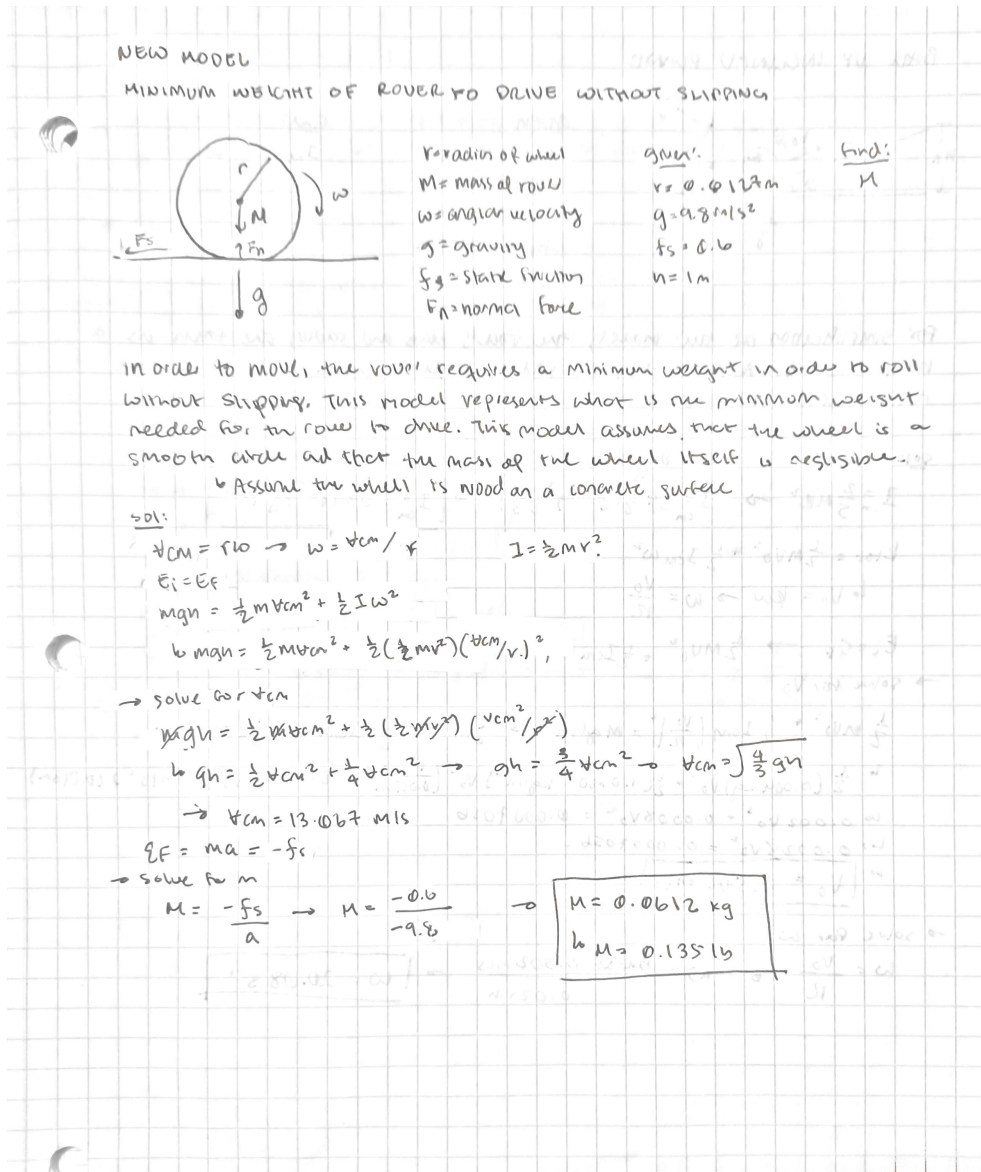 NEW MODEL
MINIMUM WEIGHT OF ROVER TO DRIVE WITHOUT SLIPPING
r
M
ω
Fs
Fn
g
r = radius of wheel
M = mass of rover
ω = anglar velocity
g = gravity
fs = static friction
Fn = normal force
given:
r = 0.0127m
g = 9.8 m/s²
fs = 0.6
h = 1m
find:
M
in order to move, the rover requires a minimum weight in order to roll
without slipping. This model represents what is the minimum weight
needed for the rover to drive. This model assumes that the wheel is a
smooth circle and that the mass of the wheel itself is negligible.
↳ Assume the wheel is wood on a concrete surface
sol:
vcm = rω → ω = vcm/r I = ½mr²
Ei = EF
mgh = ½mvcm² + ½Iω²
↳ mgh = ½mvcm² + ½(½mr²)(vcm/r)²
→ solve for vcm
mgh = ½mvcm² + ½(½mr²)(vcm²/r²)
↳ gh = ½vcm² + ¼vcm² → gh = ¾vcm² → vcm = √(4/3 gh)
→ vcm = 13.067 m/s
ΣF = ma = -fs
→ solve for m
M = -fs/a → M = -0.6/-9.8 → M = 0.0612 kg
↳ M = 0.135 lb